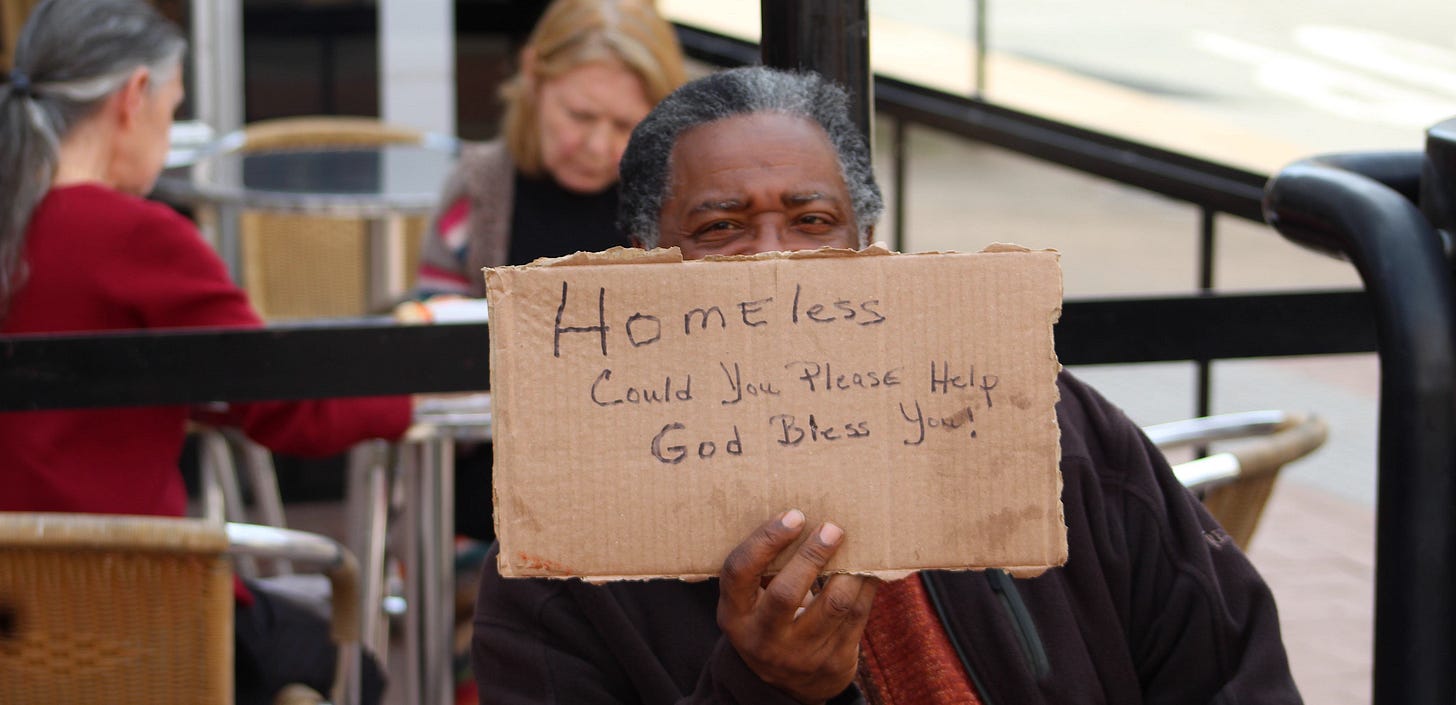 HomEless
Could You Please Help
God Bless You!